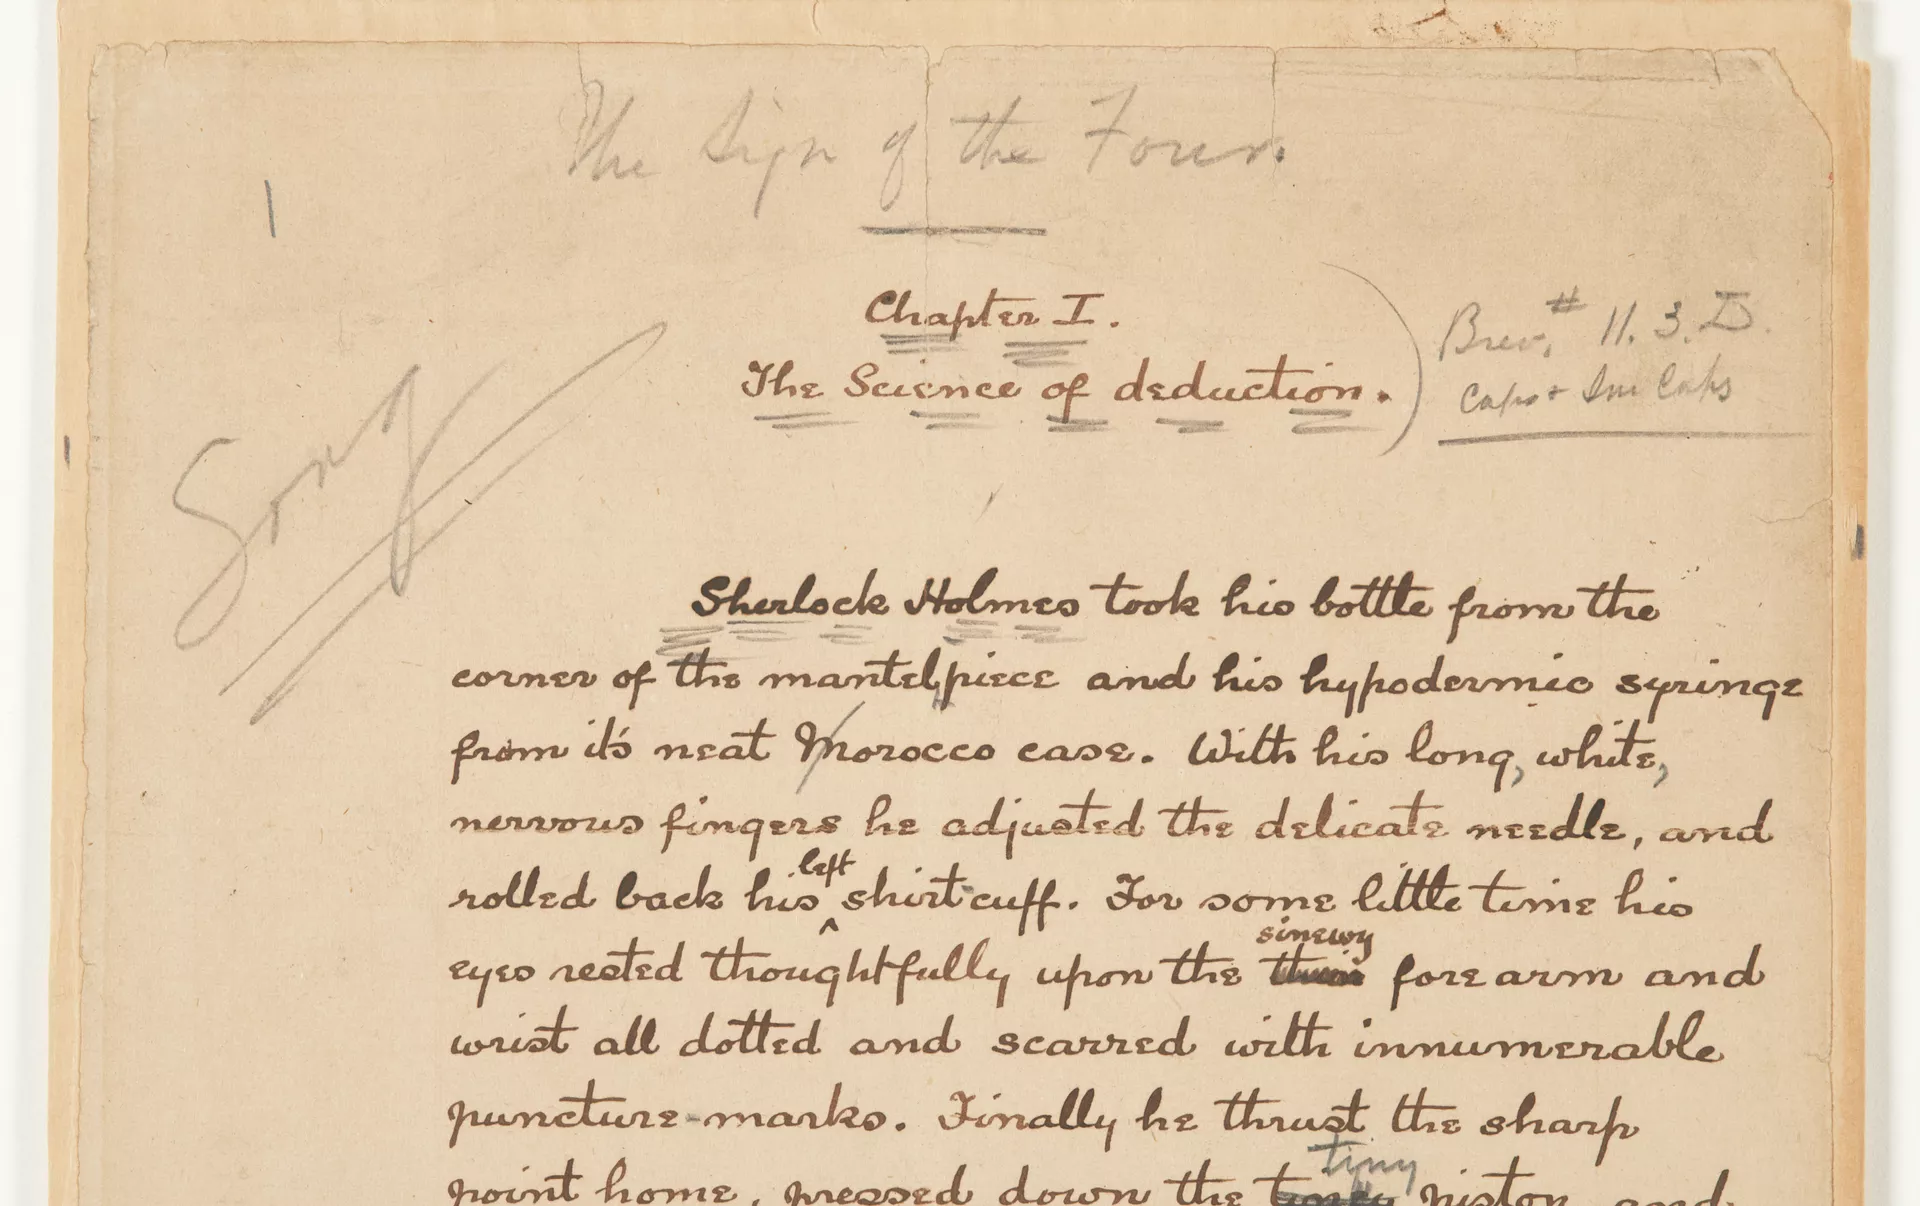 The Sign of the Four.
Chapter I.
The Science of deduction.
Brev. # 11. 3. D.
Caps + Sm Caps
Sherlock Holmes took his bottle from the
corner of the mantelpiece and his hypodermic syringe
from it's neat Morocco case. With his long, white,
nervous fingers he adjusted the delicate needle, and
rolled back his left shirt-cuff. For some little time his
eyes rested thoughtfully upon the sinewy forearm and
wrist all dotted and scarred with innumerable
puncture-marks. Finally he thrust the sharp
point home, pressed down the tiny piston, and